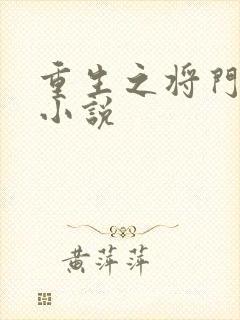 重生之将門
小說
黄萍萍